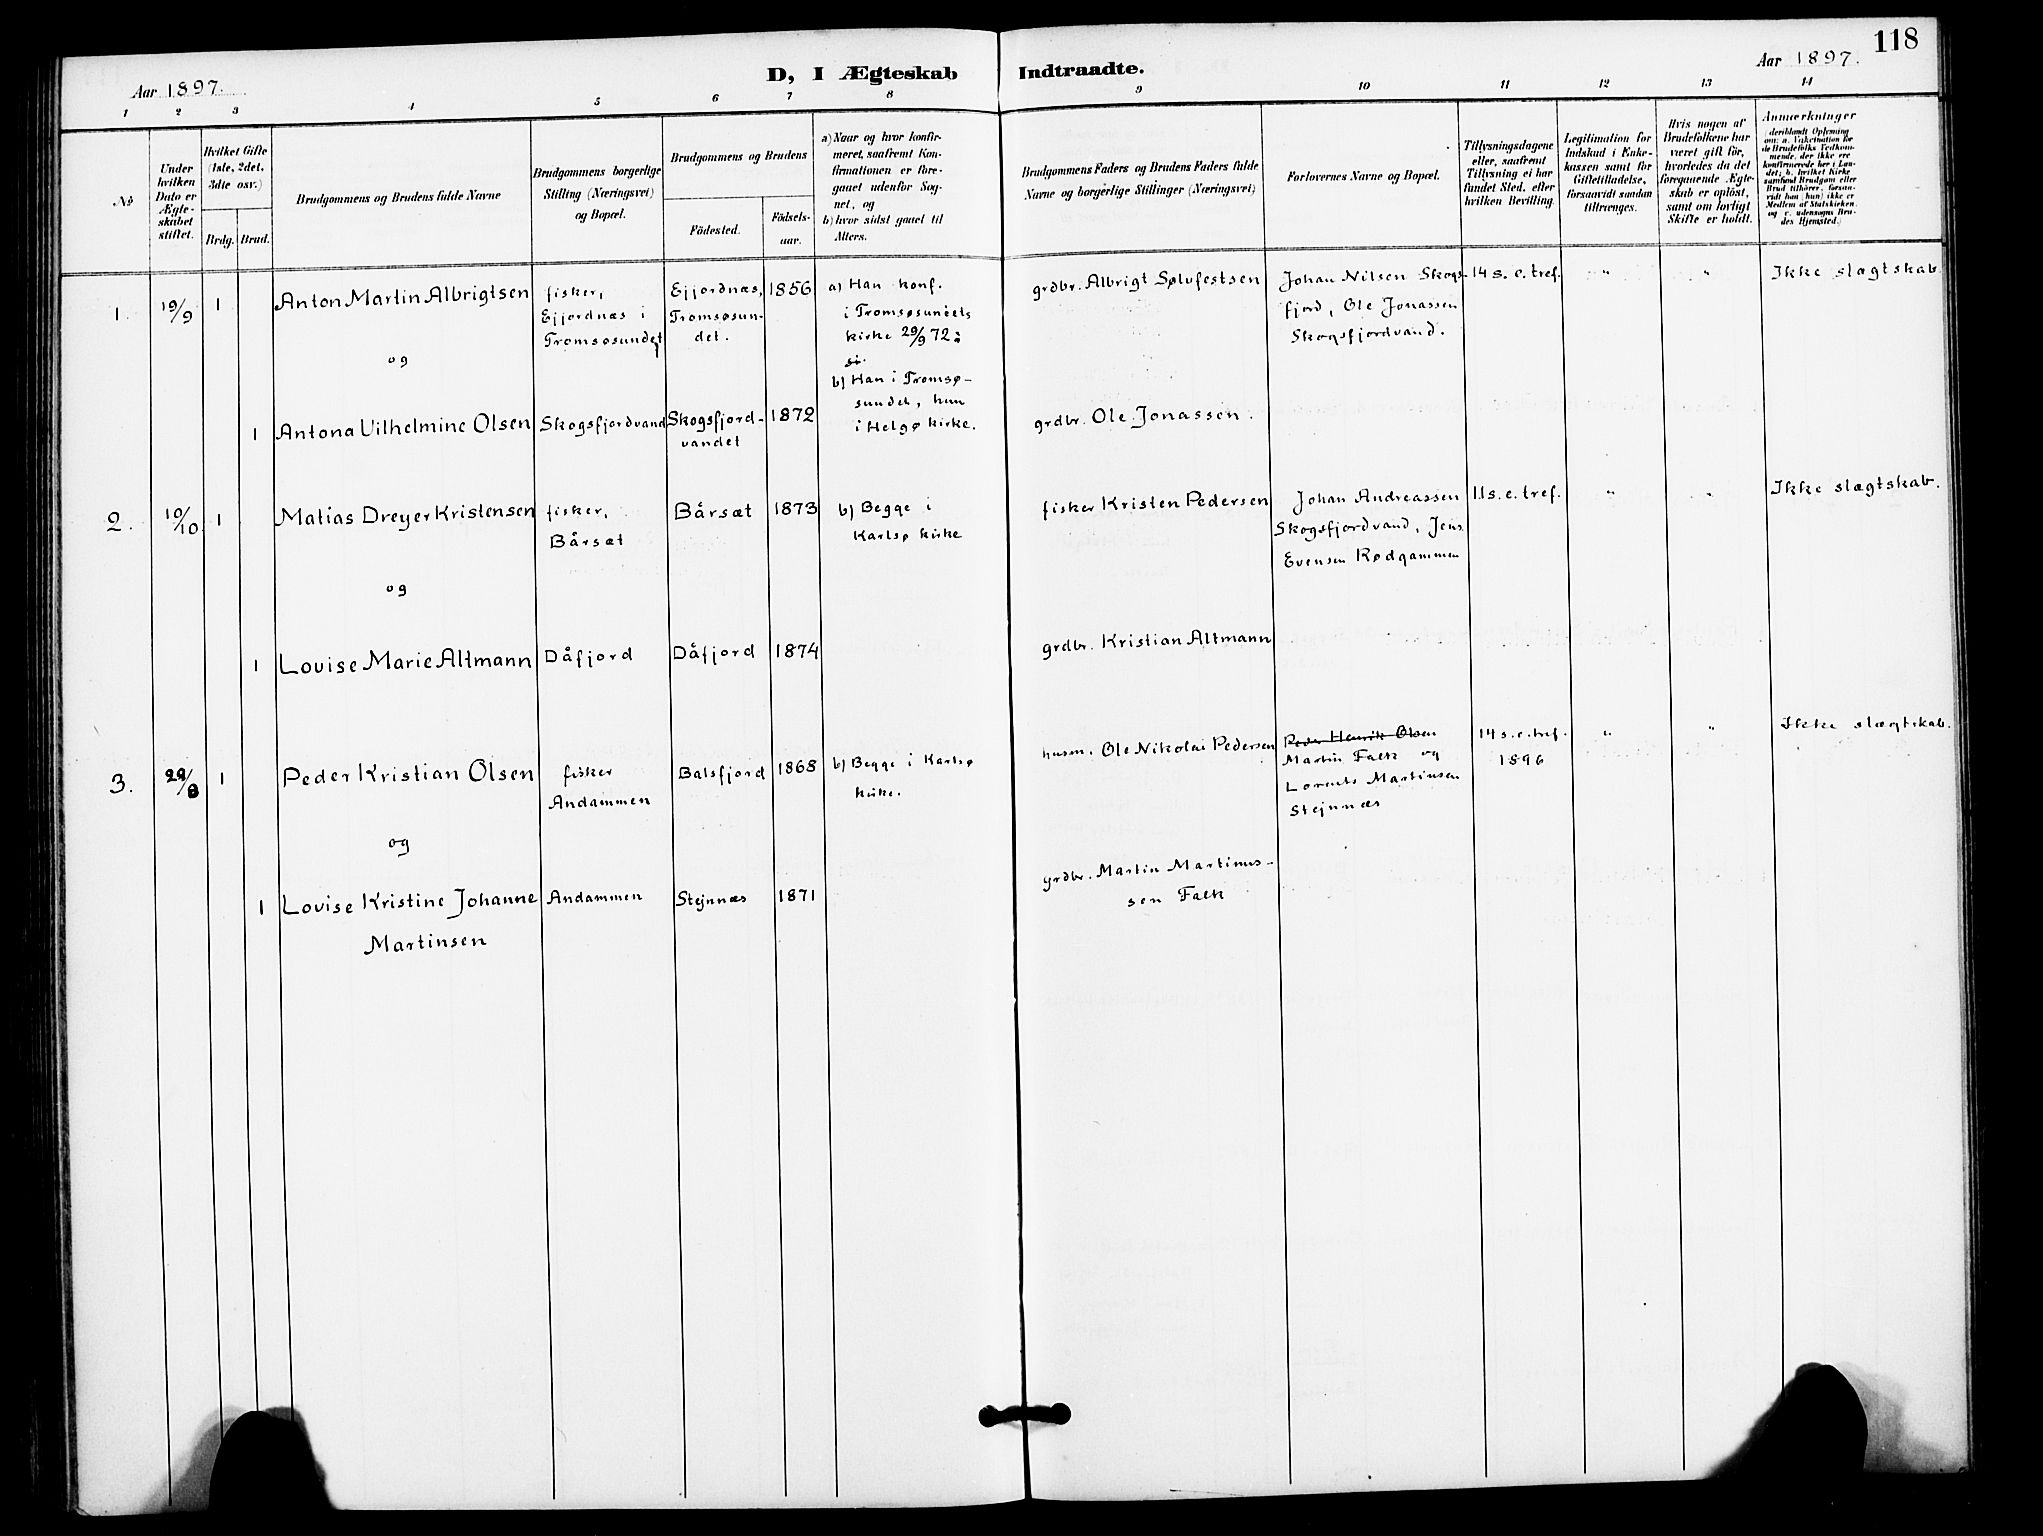 118
D, I Ægteskab Indtraadte.
Aar 1897.
Aar 1897.
1 2 3 4 5 6 7 8 9 10 11 12 13 14
No
Under
hvilken
Dato er
Ægte-
skabet
stiftet.
Hvilket Gifte
(1ste, 2det,
3dte osv.)
Brdg. Brud.
Brudgommens og Brudens fulde Navne
Brudgommens borgerlige
Stilling (Næringsvei)
og Bopæl.
Brudgommens og Brudens
Födested.
Födsels-
aar.
a) Naar og hvor konfir-
meret, saafremt Kon-
firmationen er fore-
gaaet udenfor Sog-
net, og
b) hvor sidst gaaet til
Alters.
Brudgommens Faders og Brudens Faders fulde
Navne og borgerlige Stillinger (Næringsvei)
Forlovernes Navne og Bopæl.
Tillysningsdagene
eller, saafremt
Tillysning ei har
fundet Sted, efter
hvilken Bevilling.
Legitimation for
Indskud i Enke-
kassen samt for
Giftetilladelse,
forsaavidt saadan
tiltrænges.
Hvis nogen af
Brudefolkene har
været gift før,
hvorledes da det
foregaaende Ægte-
skab er oplöst,
samt om lovligt
Skifte er holdt.
Anmærkninger
(deriblandt Oplysning
om: a. Vakcination for
de Brudefolks Vedkom-
mende, der ikke ere
konfirmerede her i Lan-
det; b. hvilket Kirke
samfund Brudgom eller
Brud tilhörer, forsaa-
vidt han (hun) ikke er
Medlem af Statskirken,
og c. udensogns Bru-
des Hjemsted.)
1. 19/9 1 Anton Martin Albrigtsen
fisker,
Ejjordnæs i
Tromsøsundet
Ejjordnæs,
Tromsøsun-
det.
1856
a) Han konf.
i Tromsøsundets
kirke 29/9 72
b) Han i Tromsø-
sundet, hun
i Helgø kirke.
grdbr. Albrigt Sølufestsen
Johan Nilsen Skogs-
fjord, Ole Jonassen
Skogsfjordvand.
14 s. e. tref. " "
Ikke slægtskab.
og
1 Antona Vilhelmine Olsen
Skogsfjordvand
Skogsfjord-
vandet
1872
grdbr. Ole Jonassen.
2. 10/10 1 Matias Dreyer Kristensen
fisker,
Bårsæt
Bårsæt 1873
b) Begge i
Karlsø kirke
fisker Kristen Pedersen
Johan Andreassen
Skogsfjordvand, Jens
Evensen Rødgammen
11 s. e. tref. " "
Ikke slægtskab.
og
1 Lovise Marie Altmann
Dåfjord Dåfjord 1874
grdbr. Kristian Altmann
3. 1 Peder Kristian Olsen
fisker
Andammen
Balsfjord 1868
b) Begge i Karlsø
kirke.
husm. Ole Nikolai Pedersen
Peder Henrik Olsen
Martin Falk og
Lorents Martinsen
Stejnnæs
14 s. e. tref.
1896
" "
Ikke slægtskab.
og
1 Lovise Kristine Johanne
Martinsen
Andammen Stejnnæs 1871
grdbr. Martin Martinus-
sen Falk